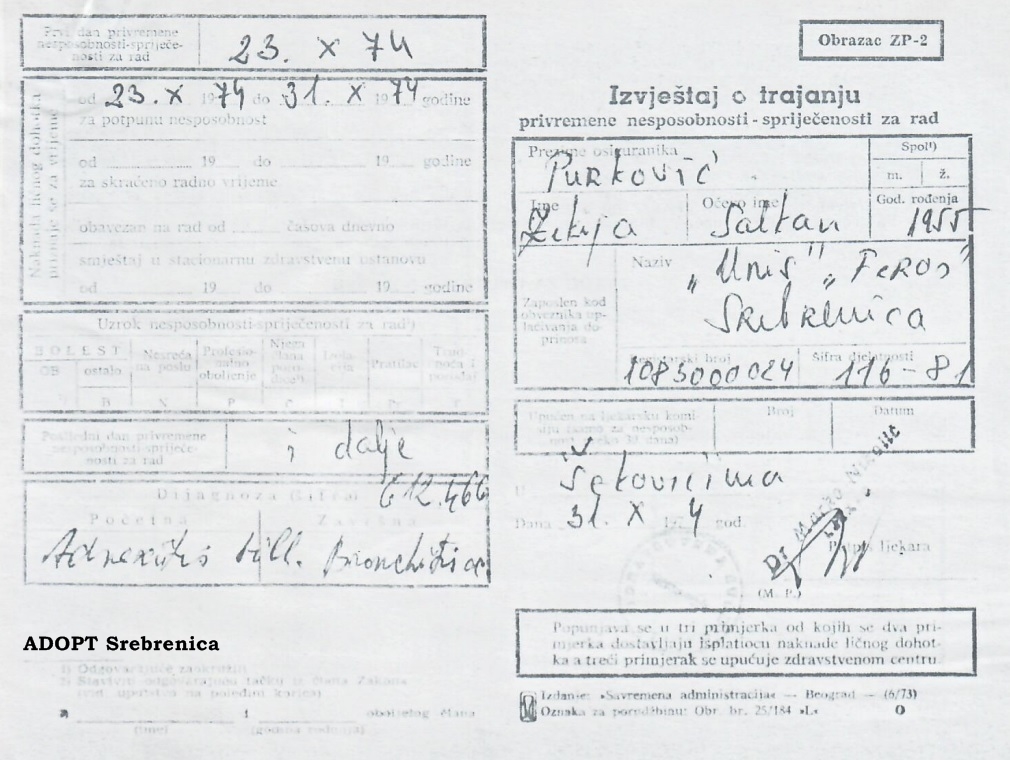 Prvi dan privremene
nesposobnosti-spriječe-
nosti za rad
23. X 74
Naknada ličnog dohotka
priznaje se za vrijeme
od 23. X 1974 do 31. X 1974 godine
za potpunu nesposobnost
od 19 do 19 godine
za skraćeno radno vrijeme
obavezan na rad od časova dnevno
smještaj u stacionarnu zdravstvenu ustanovu
od 19 do 19 godine
Uzrok nesposobnosti-spriječenosti za rad¹)
BOLEST
ostalo
Nesreća
na poslu
Profesio-
nalno
oboljenje
Njega
člana
poro-
dice²)
Izola-
cija
Pratilac
Trud-
noća i
porođaj
Posljednji dan privremene
nesposobnosti-spriječe-
nosti za rad
i dalje
Dijagnoza (šifra)
612.466
Početna
Završna
Adnexitis bill. Bronchitis ac
ADOPT Srebrenica
1) Odgovarajuće zaokružiti
2) Staviti odgovarajuću tačku iz člana Zakona
oboljelog člana
(ime)
(godina rođenja)
Obrazac ZP-2
Izvještaj o trajanju
privremene nesposobnosti-spriječenosti za rad
Prezime osiguranika
Purković
Spol¹)
m.
ž.
Ime
Zekija
Očevo ime
Saltan
God. rođenja
1955
Zaposlen kod
obveznika up-
laćivanja do-
prinosa
Naziv
„Unis" „Feros"
Srebrenica
Registarski broj
1083000024
Šifra djelatnosti
116-81
Upućen na ljekarsku komi-
siju (samo za nesposob-
nost preko 30 dana)
Broj
Datum
U Šekovićima
Dana 31. X 1974 god.
Dr Marko
Potpis ljekara
(M. P.)
Popunjava se u tri primjerka od kojih se dva pri-
mjerka dostavljaju isplatiocu naknade ličnog dohot-
ka a treći primjerak se upućuje zdravstvenom centru
Izdanje: »Savremena administracija« — Beograd — (6/73)
Oznaka za porudžbinu: Obr. br. 25/184 »L« O